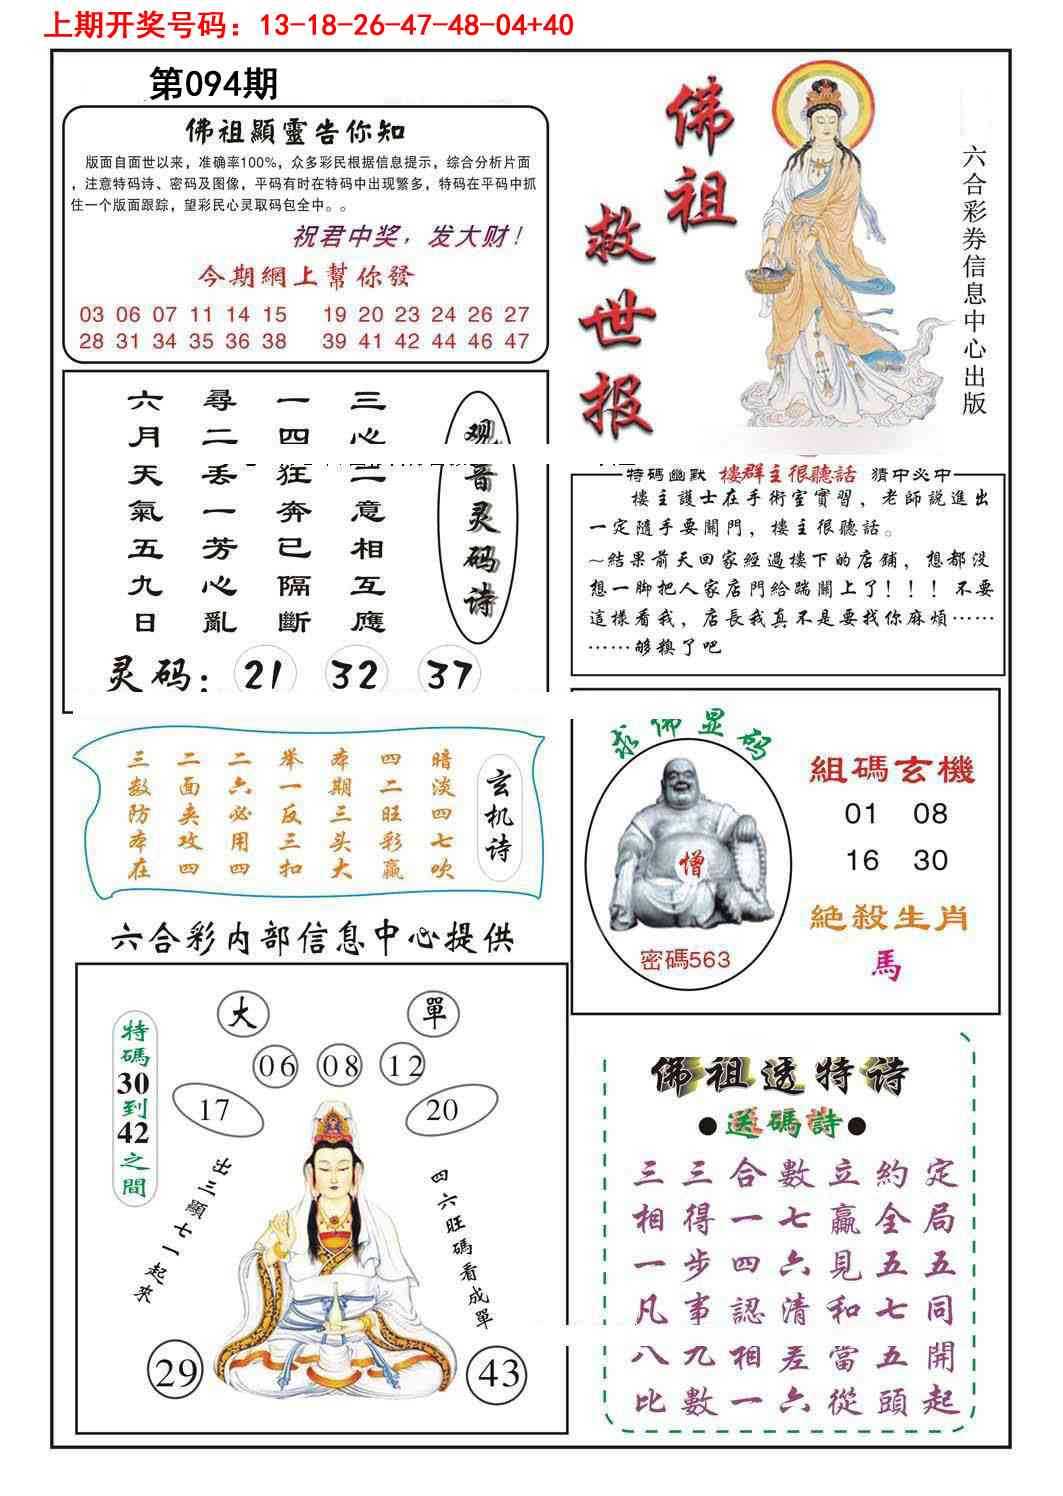 上期开奖号码：13-18-26-47-48-04+40
第094期
佛祖顯靈告你知
版面自面世以来，准确率100%，众多彩民根据信息提示，综合分析片面
，注意特码诗、密码及图像，平码有时在特码中出现繁多，特码在平码中抓
住一个版面跟踪，望彩民心灵取码包全中。。
祝君中奖，发大财！
今期網上幫你發
03 06 07 11 14 15 19 20 23 24 26 27
28 31 34 35 36 38 39 41 42 44 46 47
佛祖
救世报
六合彩券信息中心出版
观音灵码诗
三心二意相互應
一四狂奔已隔斷
尋二丢一芳心亂
六月天氣五九日
灵码：21 32 37
特碼幽默 樓群主很聽話 猜中必中
樓主護士在手術室實習，老師説進出
一定隨手要關門，樓主很聽話。
~結果前天回家經過樓下的店鋪，想都没
想一脚把人家店門給踹關上了！！！不要
這樣看我，店長我真不是要找你麻煩……
……够糗了吧
玄机诗
暗淡四七吹
四二旺彩赢
本期三头大
举一反三扣
二六必用四
二面夹攻四
三数防本在
求佛显码
憎
密碼563
組碼玄機
01 08
16 30
絶殺生肖
馬
六合彩内部信息中心提供
大
單
06 08 12
17
20
特碼30到42之間
出三顯七一起來
四六旺碼看成單
29
43
佛祖透特诗
●送碼詩●
三三合數立約定
相得一七贏全局
一步四六見五五
凡事認清和七同
八九相差當五開
比數一六從頭起